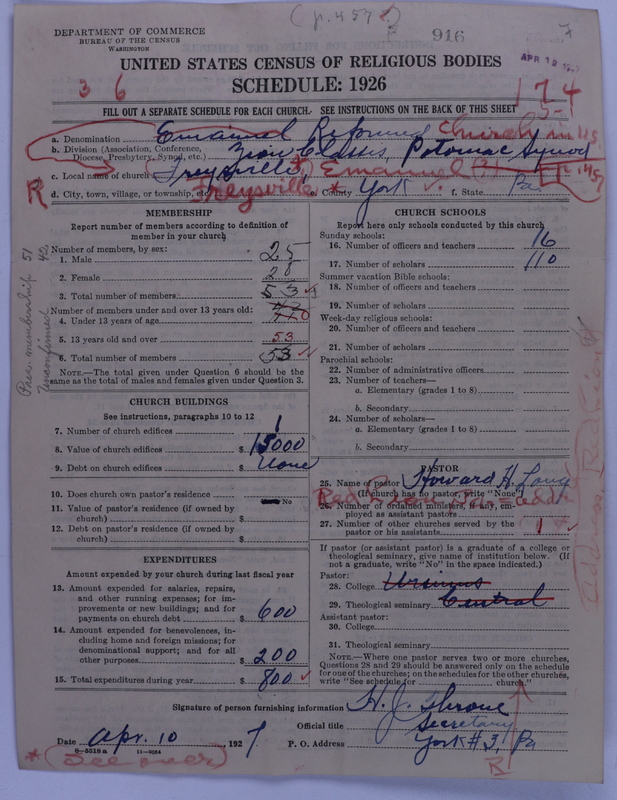 (p. 457)
DEPARTMENT OF COMMERCE
BUREAU OF THE CENSUS
WASHINGTON
916
APR 12
UNITED STATES CENSUS OF RELIGIOUS BODIES
SCHEDULE: 1926
3 6
174
FILL OUT A SEPARATE SCHEDULE FOR EACH CHURCH. SEE INSTRUCTIONS ON THE BACK OF THIS SHEET
a. Denomination Emanuel Reformed Church in U.S.
b. Division (Association, Conference, Diocese, Presbytery, Synod, etc.) Zion Classis, Potomac Synod
c. Local name of church Freysville, * Emanuel (?)
d. City, town, village, or township, etc. Freysville * e. County York f. State Pa
R
MEMBERSHIP
Report number of members according to definition of member in your church
Number of members, by sex:
1. Male 25
2. Female 28
3. Total number of members 53
Number of members under and over 13 years old:
4. Under 13 years of age 0
5. 13 years old and over 53
6. Total number of members 53
NOTE.—The total given under Question 6 should be the same as the total of males and females given under Question 3.
Prev. membership 51
Unconfirmed 42
CHURCH BUILDINGS
See instructions, paragraphs 10 to 12
7. Number of church edifices 1
8. Value of church edifices $ 15000
9. Debt on church edifices $ None
10. Does church own pastor's residence No
11. Value of pastor's residence (if owned by church) $
12. Debt on pastor's residence (if owned by church) $
EXPENDITURES
Amount expended by your church during last fiscal year
13. Amount expended for salaries, repairs, and other running expenses; for improvements or new buildings; and for payments on church debt $ 600
14. Amount expended for benevolences, including home and foreign missions; for denominational support; and for all other purposes $ 200
15. Total expenditures during year $ 800
CHURCH SCHOOLS
Report here only schools conducted by this church
Sunday schools:
16. Number of officers and teachers 16
17. Number of scholars 110
Summer vacation Bible schools:
18. Number of officers and teachers
19. Number of scholars
Week-day religious schools:
20. Number of officers and teachers
21. Number of scholars
Parochial schools:
22. Number of administrative officers
23. Number of teachers—
a. Elementary (grades 1 to 8)
b. Secondary
24. Number of scholars—
a. Elementary (grades 1 to 8)
b. Secondary
PASTOR
25. Name of pastor Howard H.
(If church has no pastor, write "None")
Red Lion, Pa.
26. Number of ordained ministers, if any, employed as assistant pastors
27. Number of other churches served by the pastor or his assistants 1
If pastor (or assistant pastor) is a graduate of a college or theological seminary, give name of institution below. (If not a graduate, write "No" in the space indicated.)
Pastor:
28. College Ursinus
29. Theological seminary Central
Assistant pastor:
30. College
31. Theological seminary
NOTE.—Where one pastor serves two or more churches, Questions 28 and 29 should be answered only on the schedule for one of the churches; on the schedules for the other churches, write "See schedule for church."
Signature of person furnishing information H. J. Throne
Official title Secretary
Date Apr. 10, 1927
P. O. Address York #3, Pa
R
8-5318 a 11-9264
* (See over)